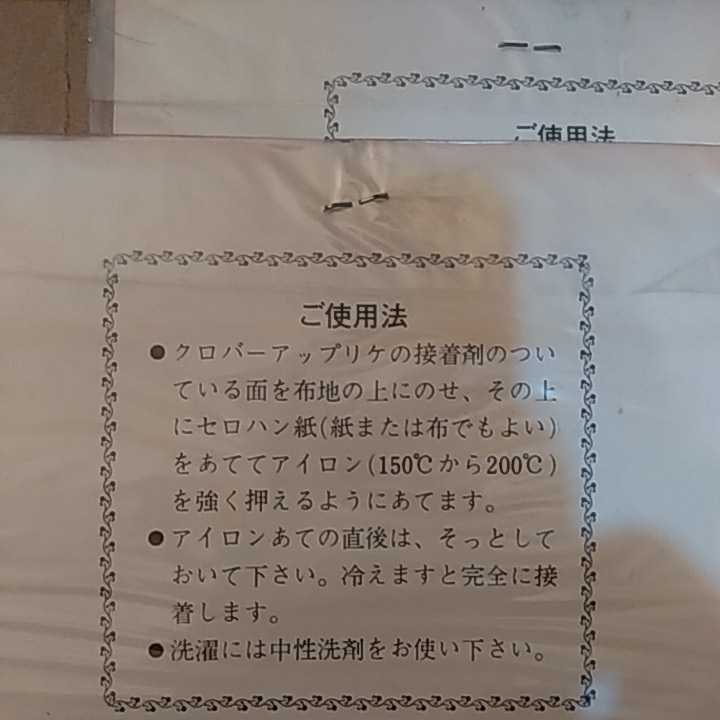 ご使用法
ご使用法
●クロバーアップリケの接着剤のつい
ている面を布地の上にのせ、その上
にセロハン紙(紙または布でもよい)
をあててアイロン(150℃から200℃)
を強く押えるようにあてます。
●アイロンあての直後は、そっとして
おいて下さい。冷えますと完全に接
着します。
●洗濯には中性洗剤をお使い下さい。